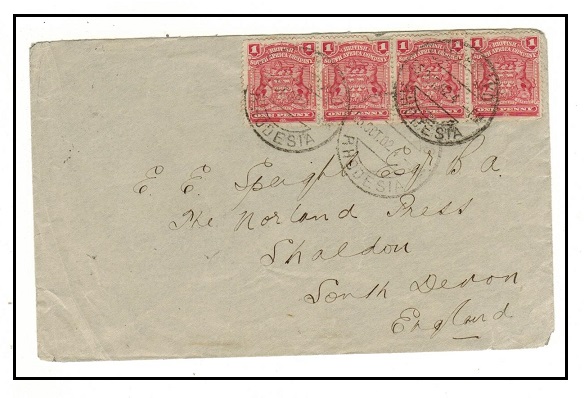 1 BRITISH 1 1 BRITISH 1 1 BRITISH 1 1 BRITISH 1
SOUTH AFRICA COMPANY SOUTH AFRICA COMPANY SOUTH AFRICA COMPANY SOUTH AFRICA COMPANY
ONE PENNY ONE PENNY ONE PENNY ONE PENNY
RHODESIA
OCT 02
RHODESIA
RHODESIA
E. E. Speight Esqr B.A.
The Norland Press
Shaldon
South Devon
England